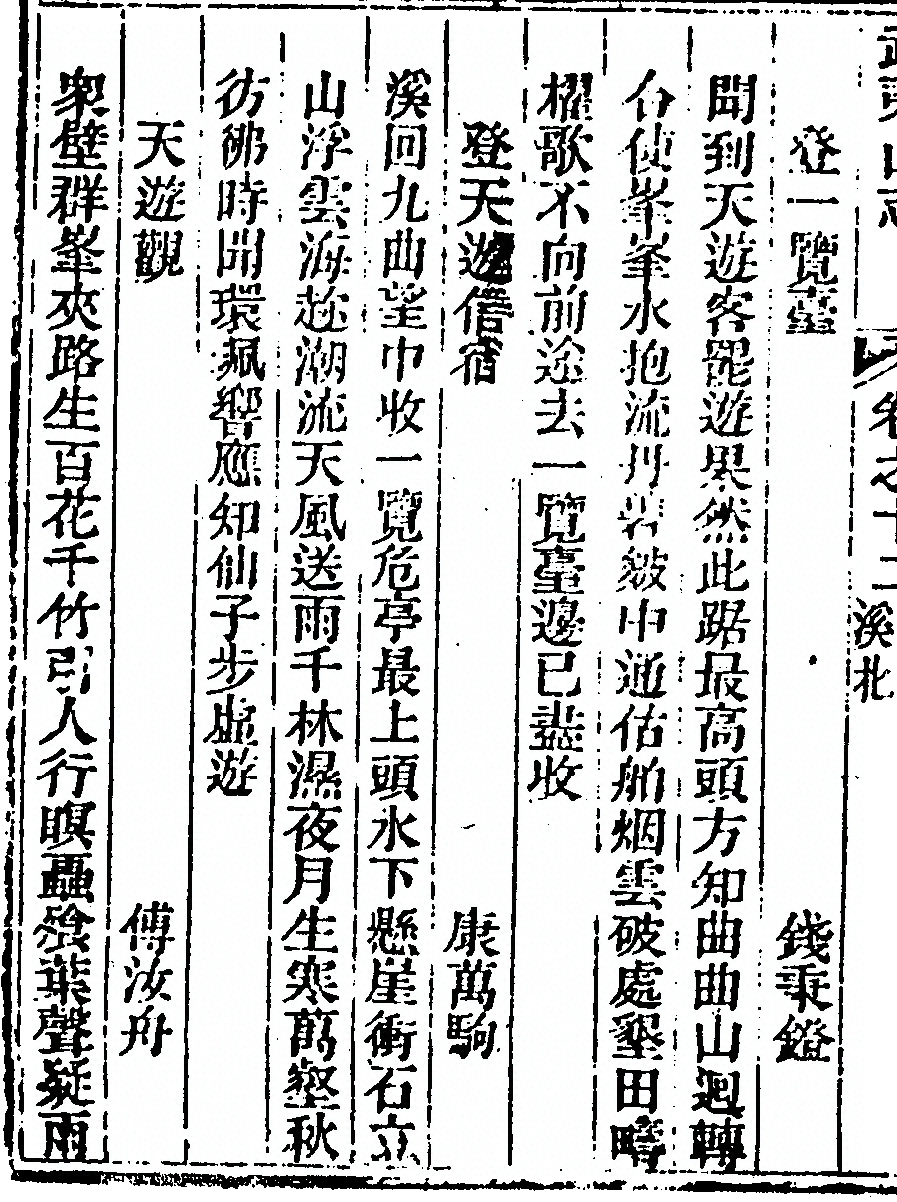 武夷山志 卷之十二 溪北
登一覽臺 錢秉鐙
聞到天遊客罷遊果然此路最高頭方知曲曲山迴轉
合使峯峯水抱流丹嶂皴中通估舶烟雲破處墾田疇
櫂歌不向前途去一覽臺邊已盡收
登天遊信宿 康萬駒
溪回九曲望中收一覽危亭最上頭水下懸崖衝石立
山浮雲海趂潮流天風送雨千林濕夜月生寒萬壑秋
彷彿時聞環珮響應知仙子步虛遊
天遊觀 傅汝舟
衆壁群峯夾路生百花千竹引人行暝蟲飧葉聲疑雨